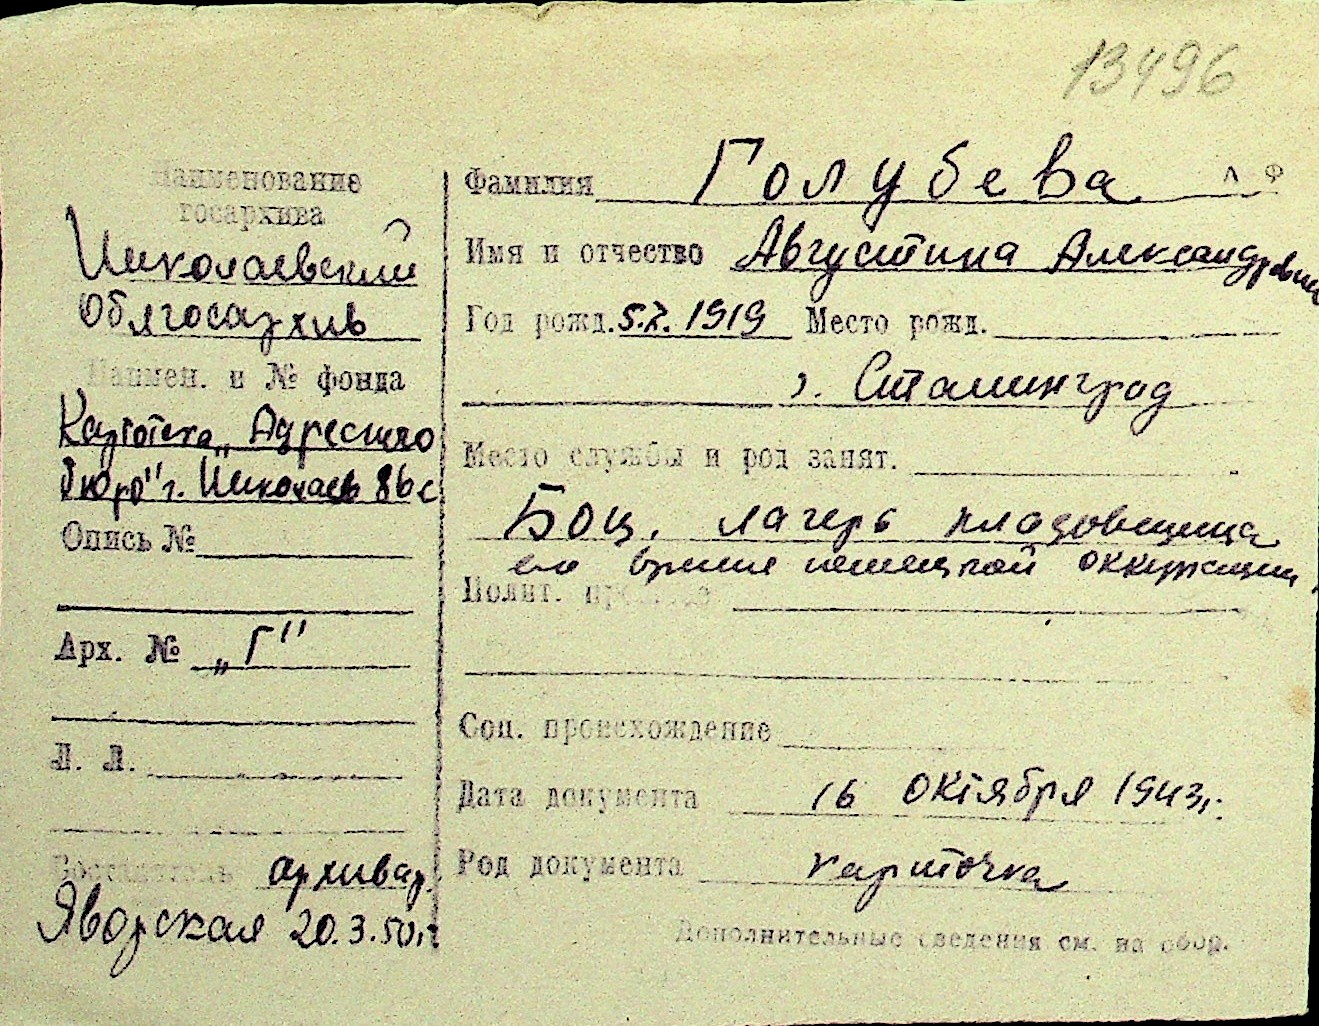 13496
Наименование
госархива
Николаевский
Облгосархив
Наимен. и № фонда
Картотека „Адресного
бюро" г. Николаев 86 с
Опись №
Арх. № „Г"
Л. Л.
Составитель архивар.
Яворская 20.3.50 г.
Фамилия Голубева
Имя и отчество Августина Александровна
Год рожд. 5.X. 1919 Место рожд.
г. Сталинград
Место службы и род занят.
лагерь кладовщица
во время немецкой оккупации
Полит.
Соц. происхождение
Дата документа 16 октября 1943 г.
Род документа карточка
Дополнительные сведения см. на обор.